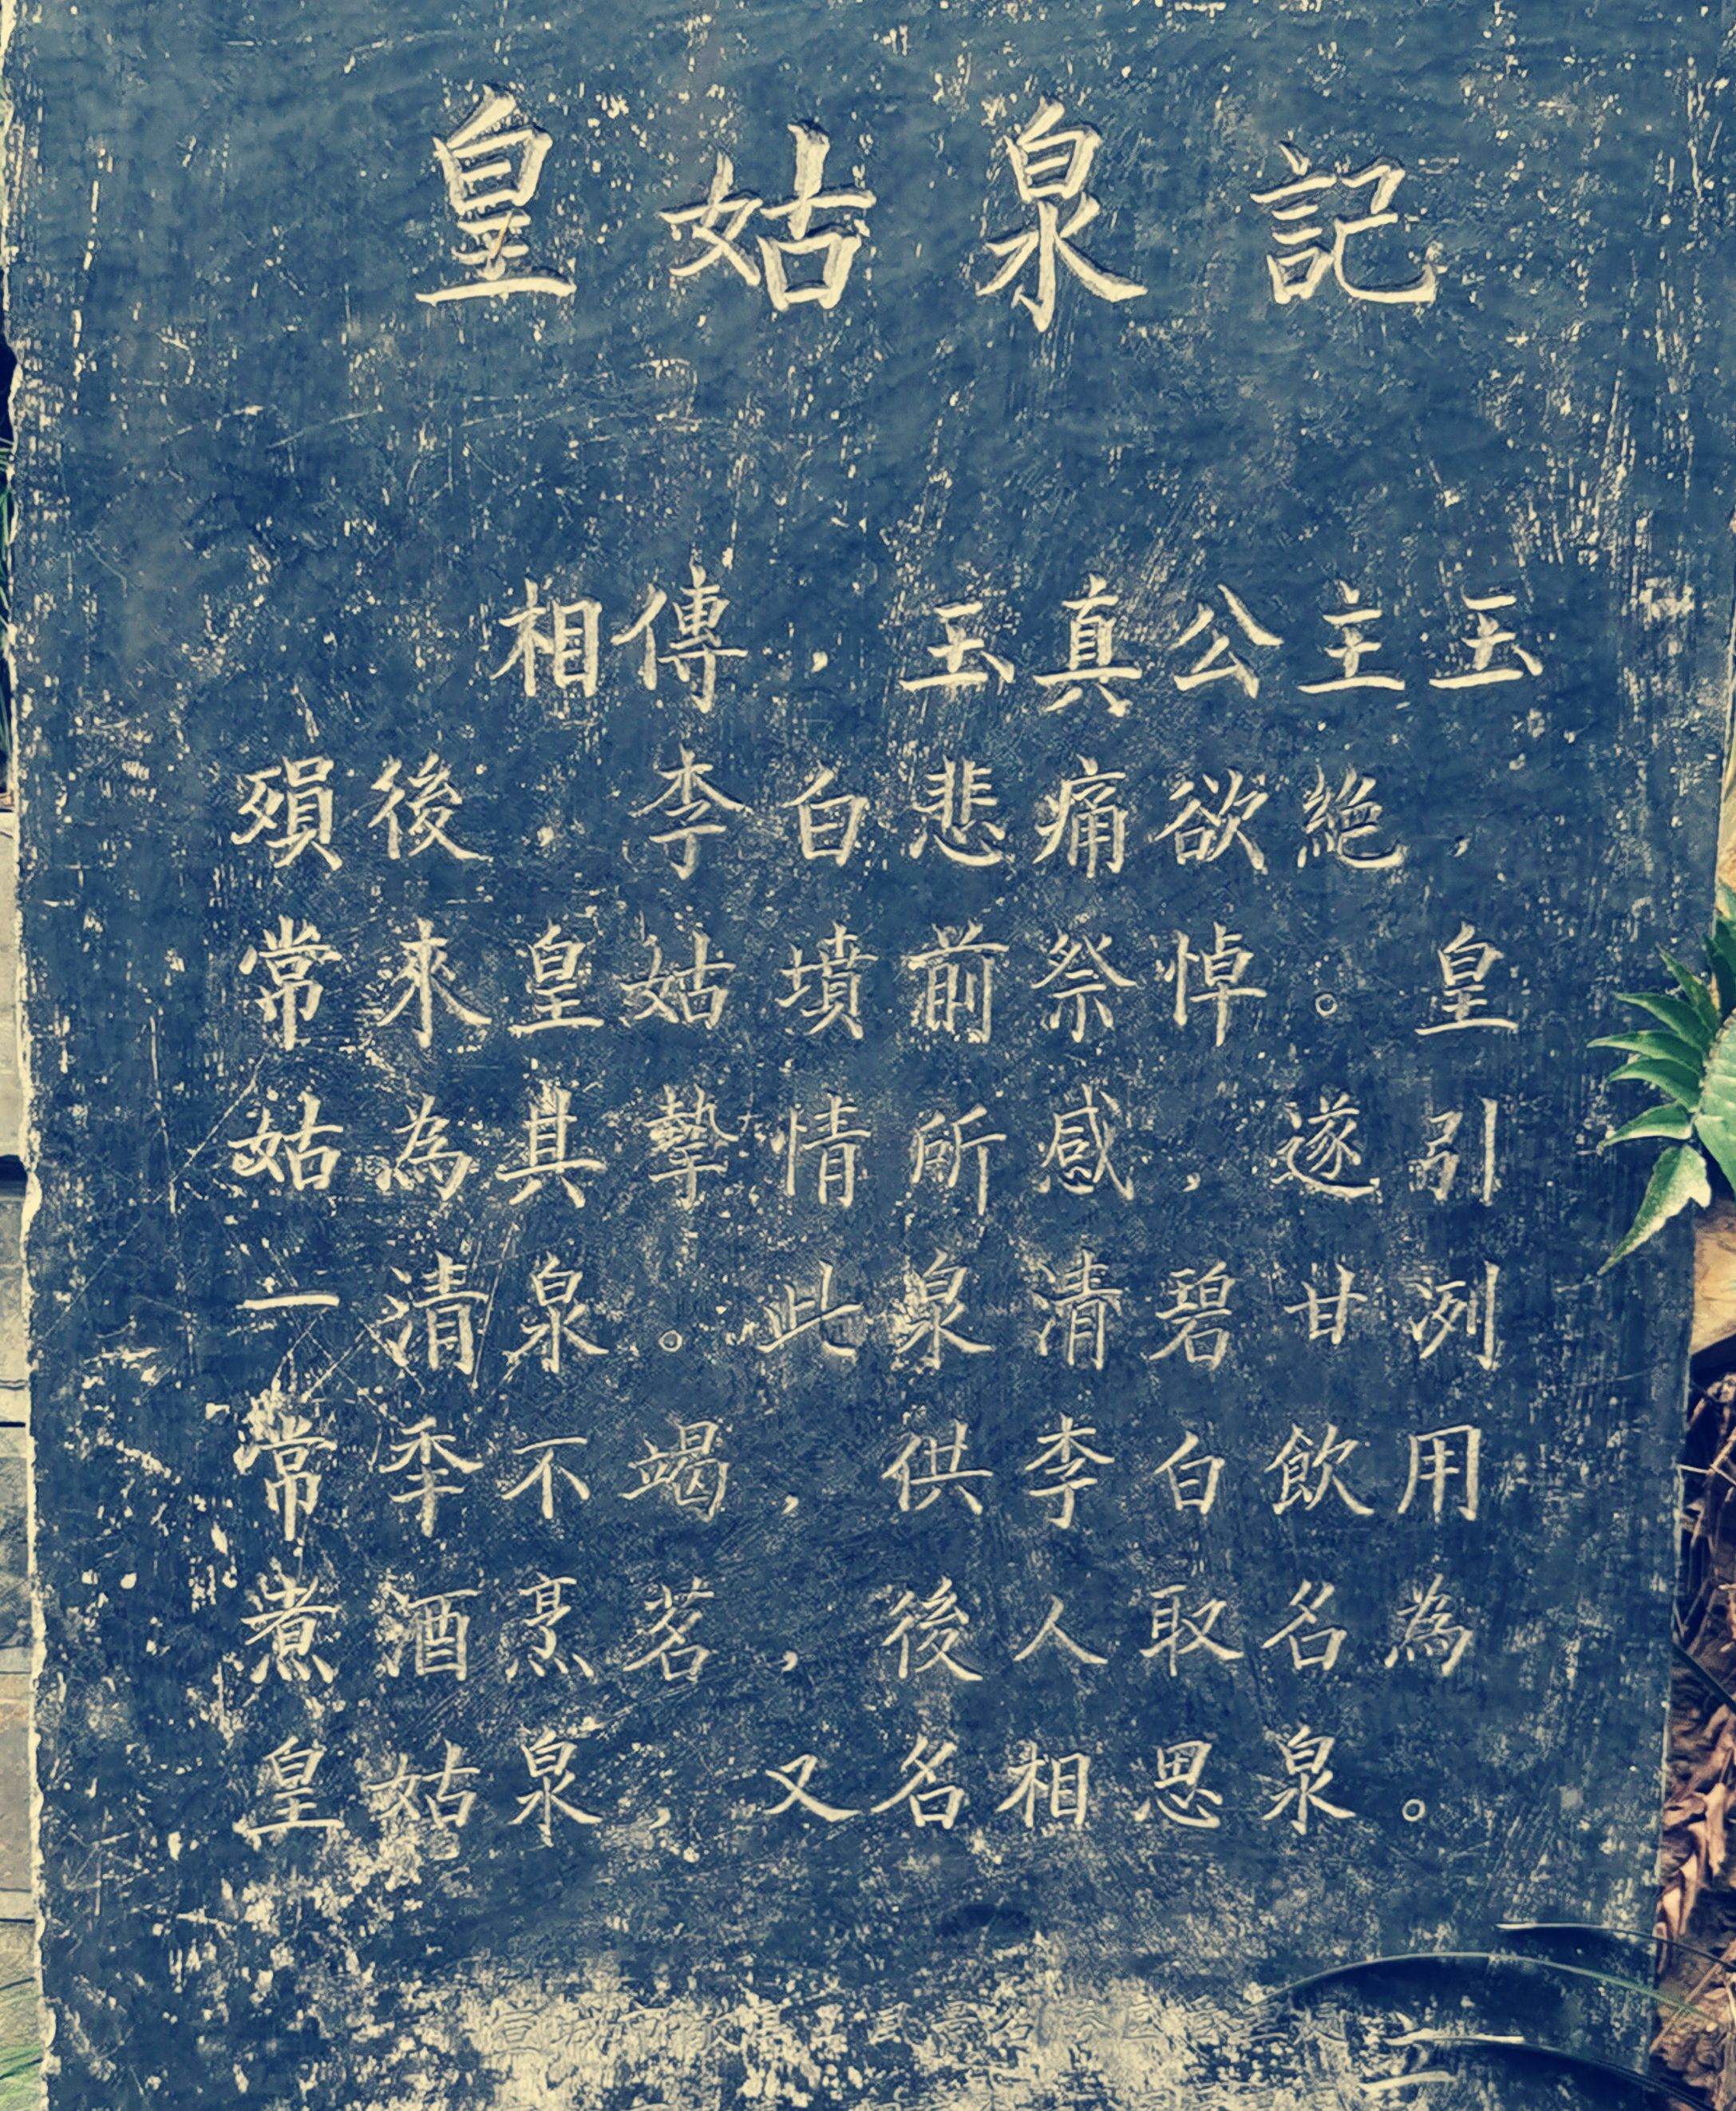 皇姑泉記
相傳，玉真公主玉
殞後，李白悲痛欲絶，
常來皇姑墳前祭悼。皇
姑為其摯情所感，遂引
一清泉。此泉清碧甘洌
常季不竭，供李白飲用
煮酒烹茗，後人取名為
皇姑泉，又名相思泉。